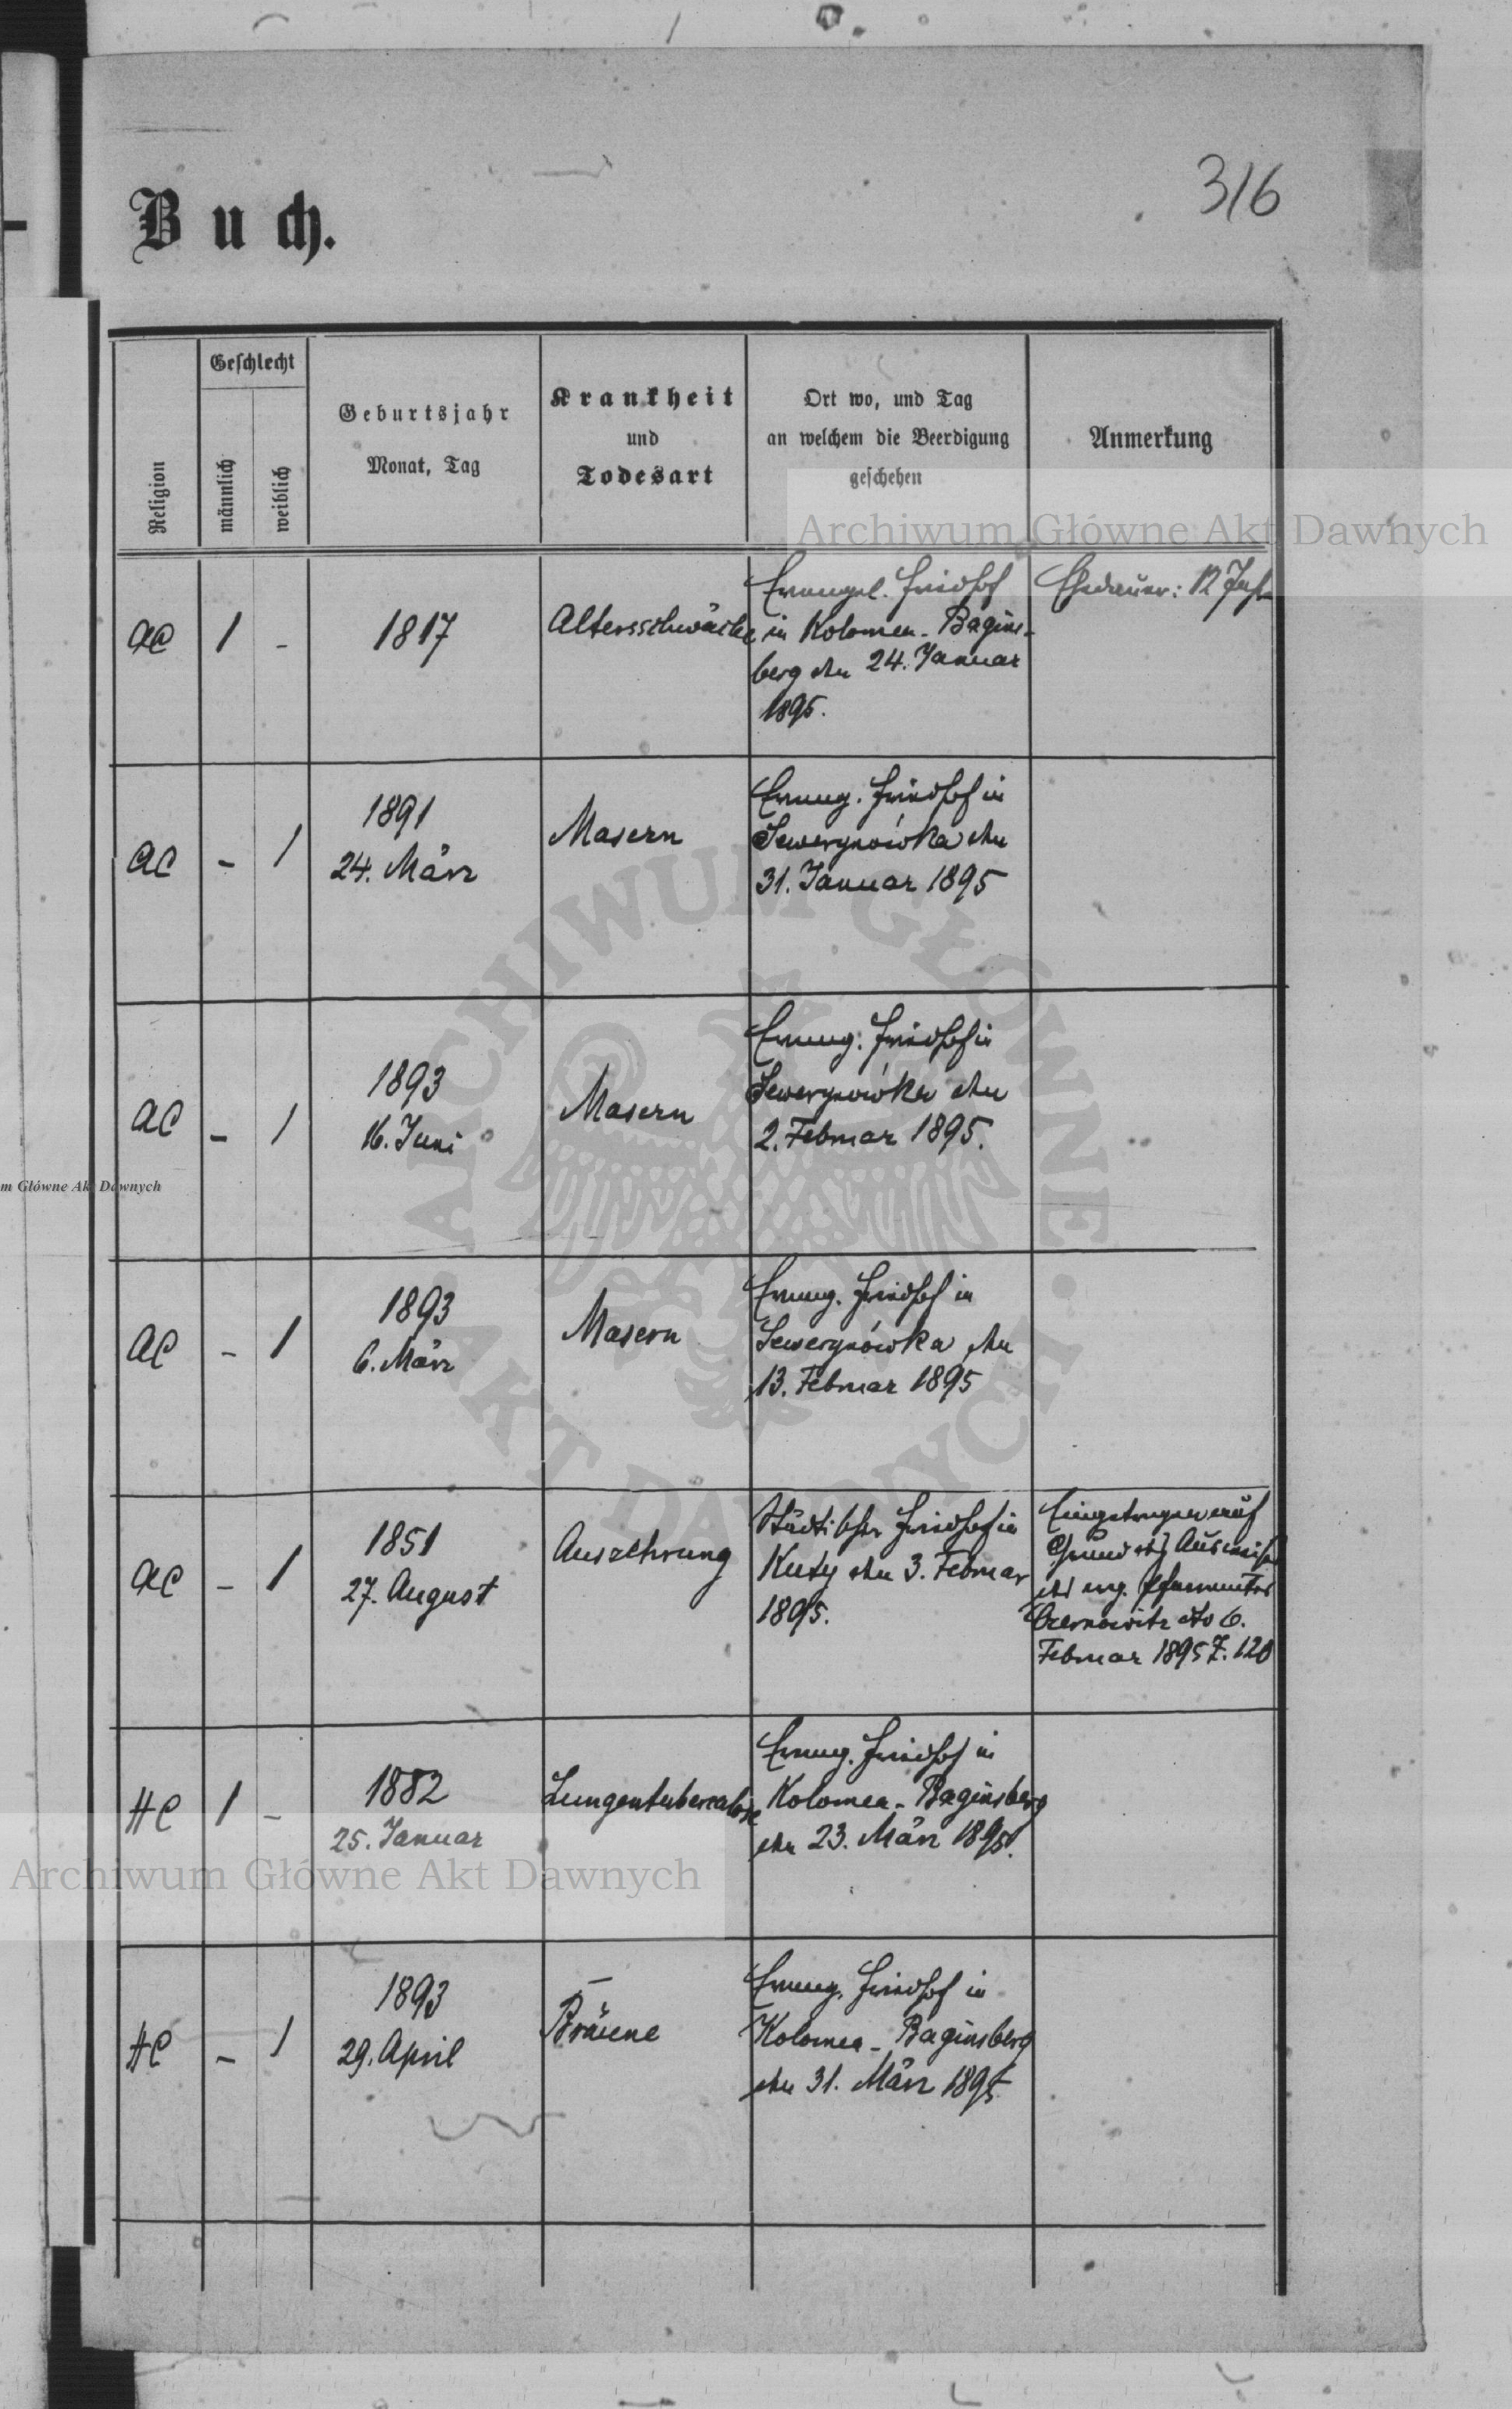 316
Buch.
Religion
Geschlecht
männlich
weiblich
Geburtsjahr
Monat, Tag
Krankheit
und
Todesart
Ort wo, und Tag
an welchem die Beerdigung
geschehen
Anmerkung
Archiwum Główne Akt Dawnych
AC
1
-
1817
Altersschwäche
Evangel. Friedhof
in Kolomea-Bagins-
berg den 24. Januar
1895.
Ehedauer: 12 Jahr
AC
-
1
1891
24. März
Masern
Evang. Friedhof in
Sewerynówka den
31. Januar 1895
AC
-
1
1893
16. Juni
Masern
Evang. Friedhof in
Sewerynówka den
2. Februar 1895.
m Główne Akt Dawnych
AC
-
1
1893
6. März
Masern
Evang. Friedhof in
Sewerynówka den
13. Februar 1895
AC
-
1
1851
27. August
Auszehrung
Städtischer Friedhof in
Kuty den 3. Februar
1895.
Eingetragen auf
Grund des Ausweises
des evg. Pfarramtes
Czernowitz dto 6.
Februar 1895 Z. 120
HC
1
-
1882
25. Januar
Lungentuberculose
Evang. Friedhof in
Kolomea-Baginsberg
den 23. März 1895.
Archiwum Główne Akt Dawnych
HC
-
1
1893
29. April
Bräune
Evang. Friedhof in
Kolomea-Baginsberg
den 31. März 1895
ARCHIWUM GŁÓWNE AKT DAWNYCH